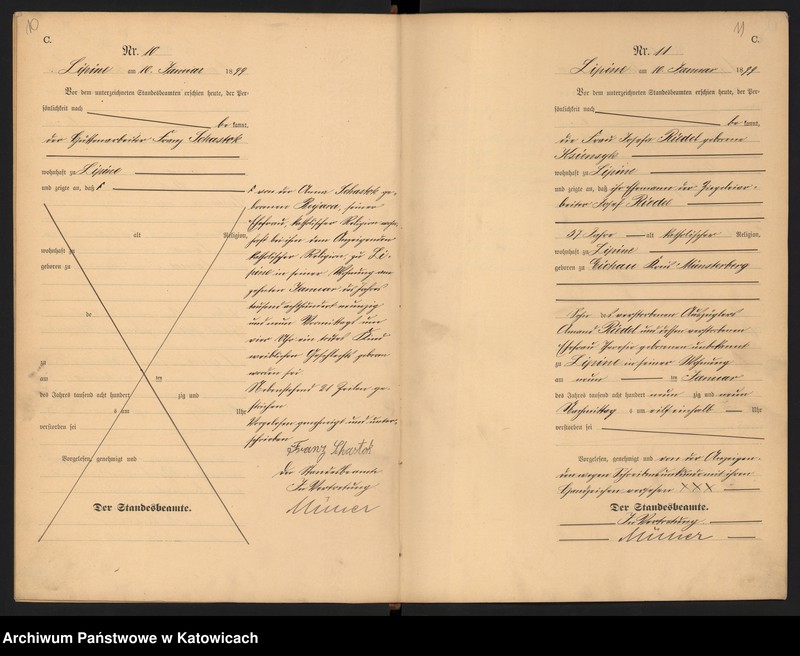 10
C.
Nr. 10
Lipine am 10. Januar 1899
Vor dem unterzeichneten Standesbeamten erschien heute, der Per-
sönlichkeit nach
be kannt,
der Hüttenarbeiter Franz Schastok
wohnhaft zu Lipine
und zeigte an, daß
alt Religion,
wohnhaft zu
geboren zu
de
zu
am ten
des Jahres tausend acht hundert zig und
um Uhr
verstorben sei
Vorgelesen, genehmigt und
Der Standesbeamte.
von der Anna Schastok ge-
borenen, seiner
Ehefrau, katholischer Religion wohn-
haft bei ihm dem Anzeigenden
katholischer Religion, zu Li-
pine in seiner Wohnung am
zehnten Januar des Jahres
tausend achthundert neunzig
und neun Vormittags um
vier Uhr ein todtes Kind
weiblichen Geschlechts geboren
worden sei
Nebenstehend 21 Zeilen ge-
strichen
Vorgelesen genehmigt und unter-
schrieben
Franz Schastok
Der Standesbeamte
In Vertretung
Müller
11
C.
Nr. 11
Lipine am 10. Januar 1899
Vor dem unterzeichneten Standesbeamten erschien heute, der Per-
sönlichkeit nach
be kannt,
die Frau Josefa Riedel geborene
wohnhaft zu Lipine
und zeigte an, daß ihr Ehemann der Ziegeleiar-
beiter Josef Riedel
57 Jahre alt katholischer Religion,
wohnhaft zu Lipine
geboren zu Eichau Kreis Münsterberg
Sohn des verstorbenen Auszüglers
Amand Riedel und dessen verstorbenen
Ehefrau geborenen unbekannt
zu Lipine in seiner Wohnung
am neun ten Januar
des Jahres tausend acht hundert neun zig und neun
Nachmittag s um eilf einhalb Uhr
verstorben sei
Vorgelesen, genehmigt und von der Anzeigen-
den wegen Schreibensunkunde mit ihrem
Handzeichen versehen XXX
Der Standesbeamte.
In Vertretung
Müller
Archiwum Państwowe w Katowicach